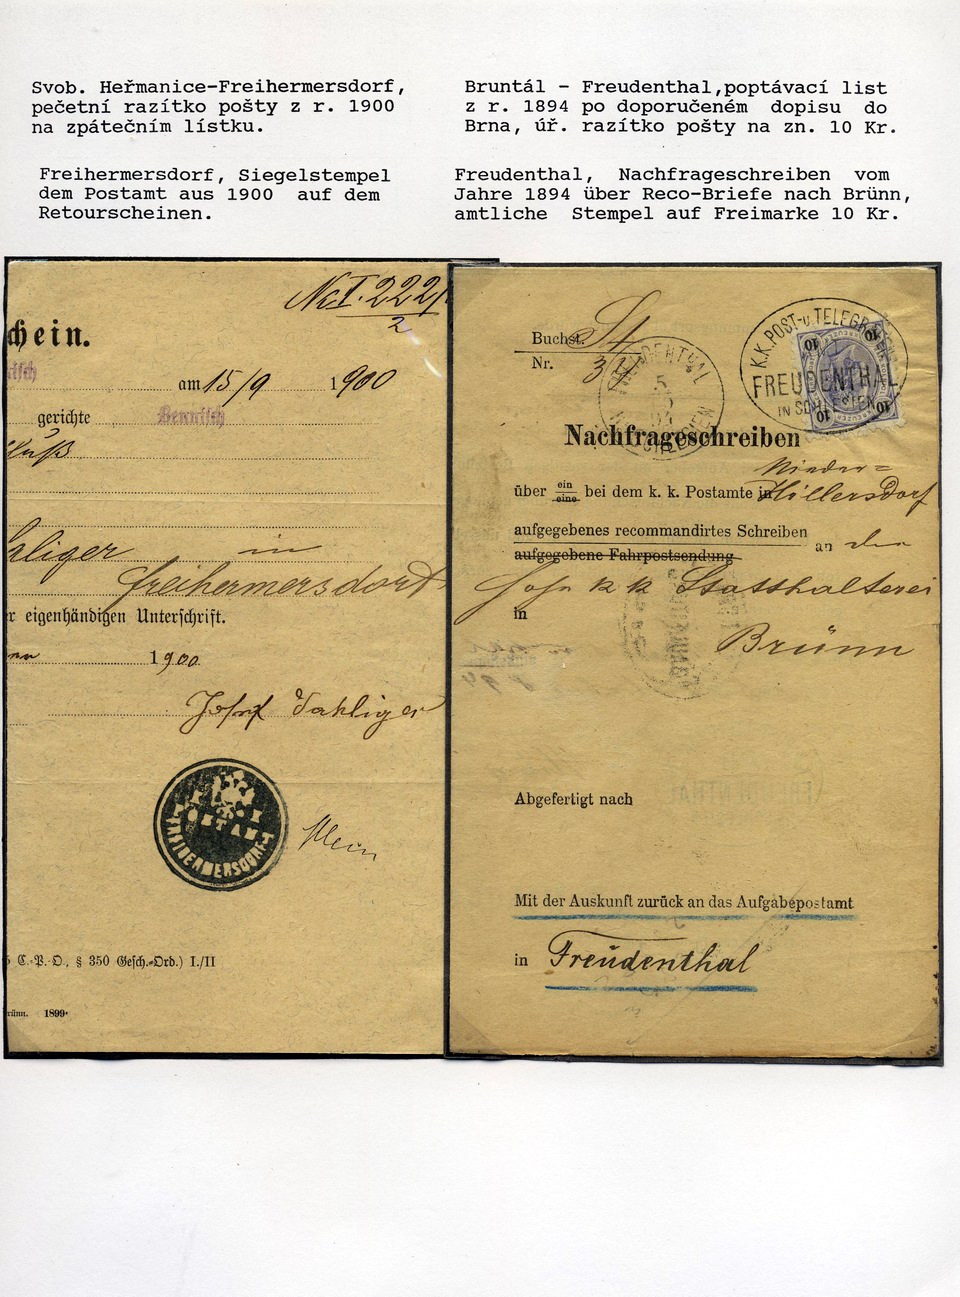 Svob. Heřmanice-Freihermersdorf,
pečetní razítko pošty z r. 1900
na zpátečním lístku.
Freihermersdorf, Siegelstempel
dem Postamt aus 1900 auf dem
Retourscheinen.
Bruntál - Freudenthal,poptávací list
z r. 1894 po doporučeném dopisu do
Brna, úř. razítko pošty na zn. 10 Kr.
Freudenthal, Nachfrageschreiben vom
Jahre 1894 über Reco-Briefe nach Brünn,
amtliche Stempel auf Freimarke 10 Kr.
chein.
am 15/9 1900
gerichte Bennisch
in
Freihermersdorf
r eigenhändigen Unterschrift.
1900
POSTAMT
FREIHERMERSDORF
Klein
C.-P.-O., § 350 Gesch.-Ord.) I./II
rünn. 1899
Buchst. St
Nr. 34
FREUDENTHAL
K.K. POST-u. TELEGRAFEN
FREUDENTHAL
IN SCHLESIEN
10 10
10 10
Nachfrageschreiben
Nieder=
über ein eine bei dem k. k. Postamte in Hillersdorf
aufgegebenes recommandirtes Schreiben
aufgegebene Fahrpostsendung
an die
k k Statthalterei
in
Brünn
Abgefertigt nach
Mit der Auskunft zurück an das Aufgabepostamt
in Freudenthal